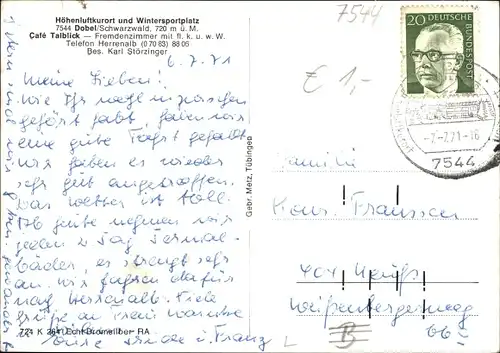 Höhenluftkurort und Wintersportplatz
7544 Dobel/Schwarzwald, 720 m ü. M.
Café Talblick — Fremdenzimmer mit fl. k. u. w. W.
Telefon Herrenalb (0 70 83) 88 06
Bes. Karl Störzinger
6.7.71
Meine Lieben!
Wie Ihr wohl inzwischen
gehört habt, haben wir
eine gute Fahrt gehabt
wir haben es wieder
sehr gut angetroffen.
Das Wetter ist toll.
Ab heute nehmen wir
jeden 2. Tag Termal-
bäder, es strengt sehr
an. Wir fahren dafür
nach Herrenalb. Viele
Grüße an Frau
Eure u. Franz
724 K 264 Echt Bromsilber RA
Gebr. Metz, Tübingen
7544
€ 1,-
20 DEUTSCHE BUNDESPOST
-7.-7.71-16
7544
Familie
Hans. Franssen
404 Neuß
Weißenbergerweg
66
B
L